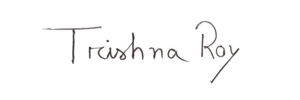 Trishna Roy